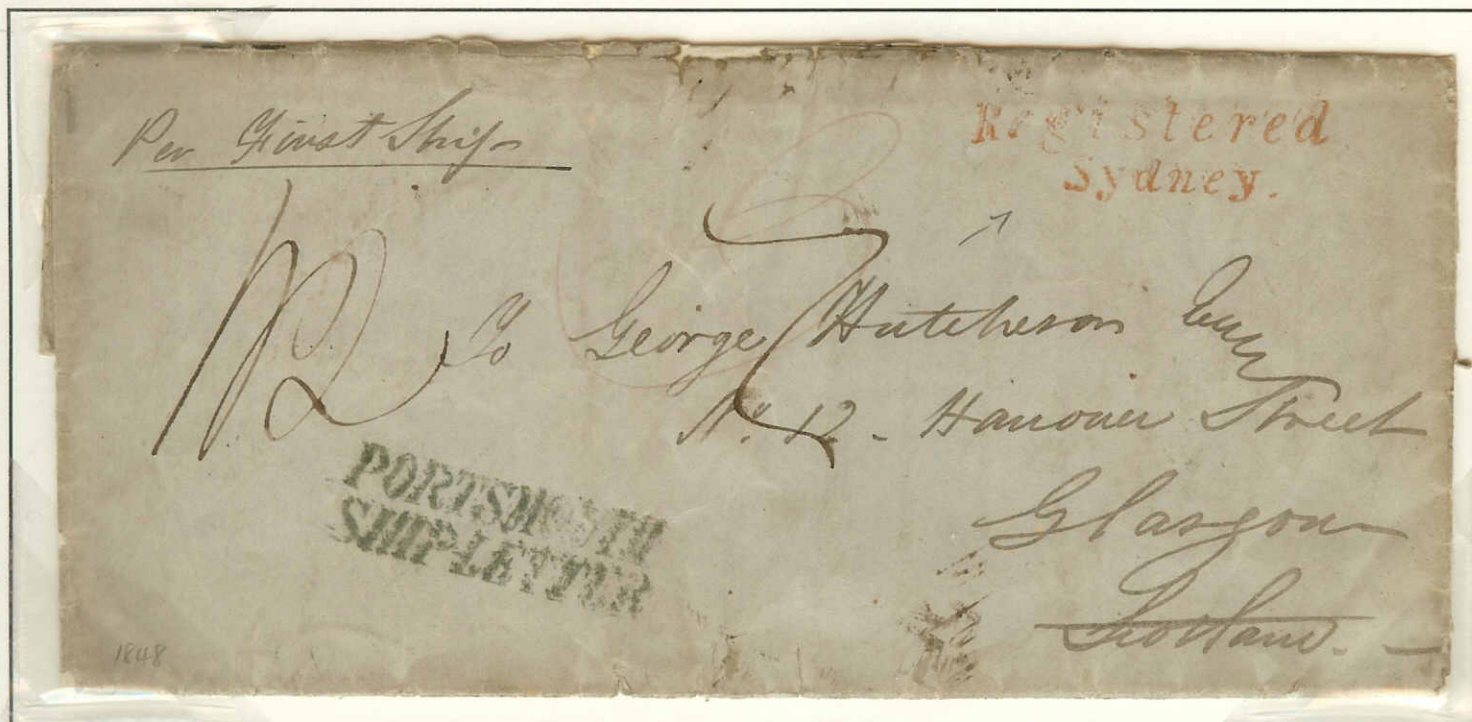 Per First Ship
Registered
Sydney.
1/2
To George Hutcheson Esqr
No. 12 - Hanover Street
Glasgow
Scotland. -
PORTSMOUTH
SHIP-LETTER
1848